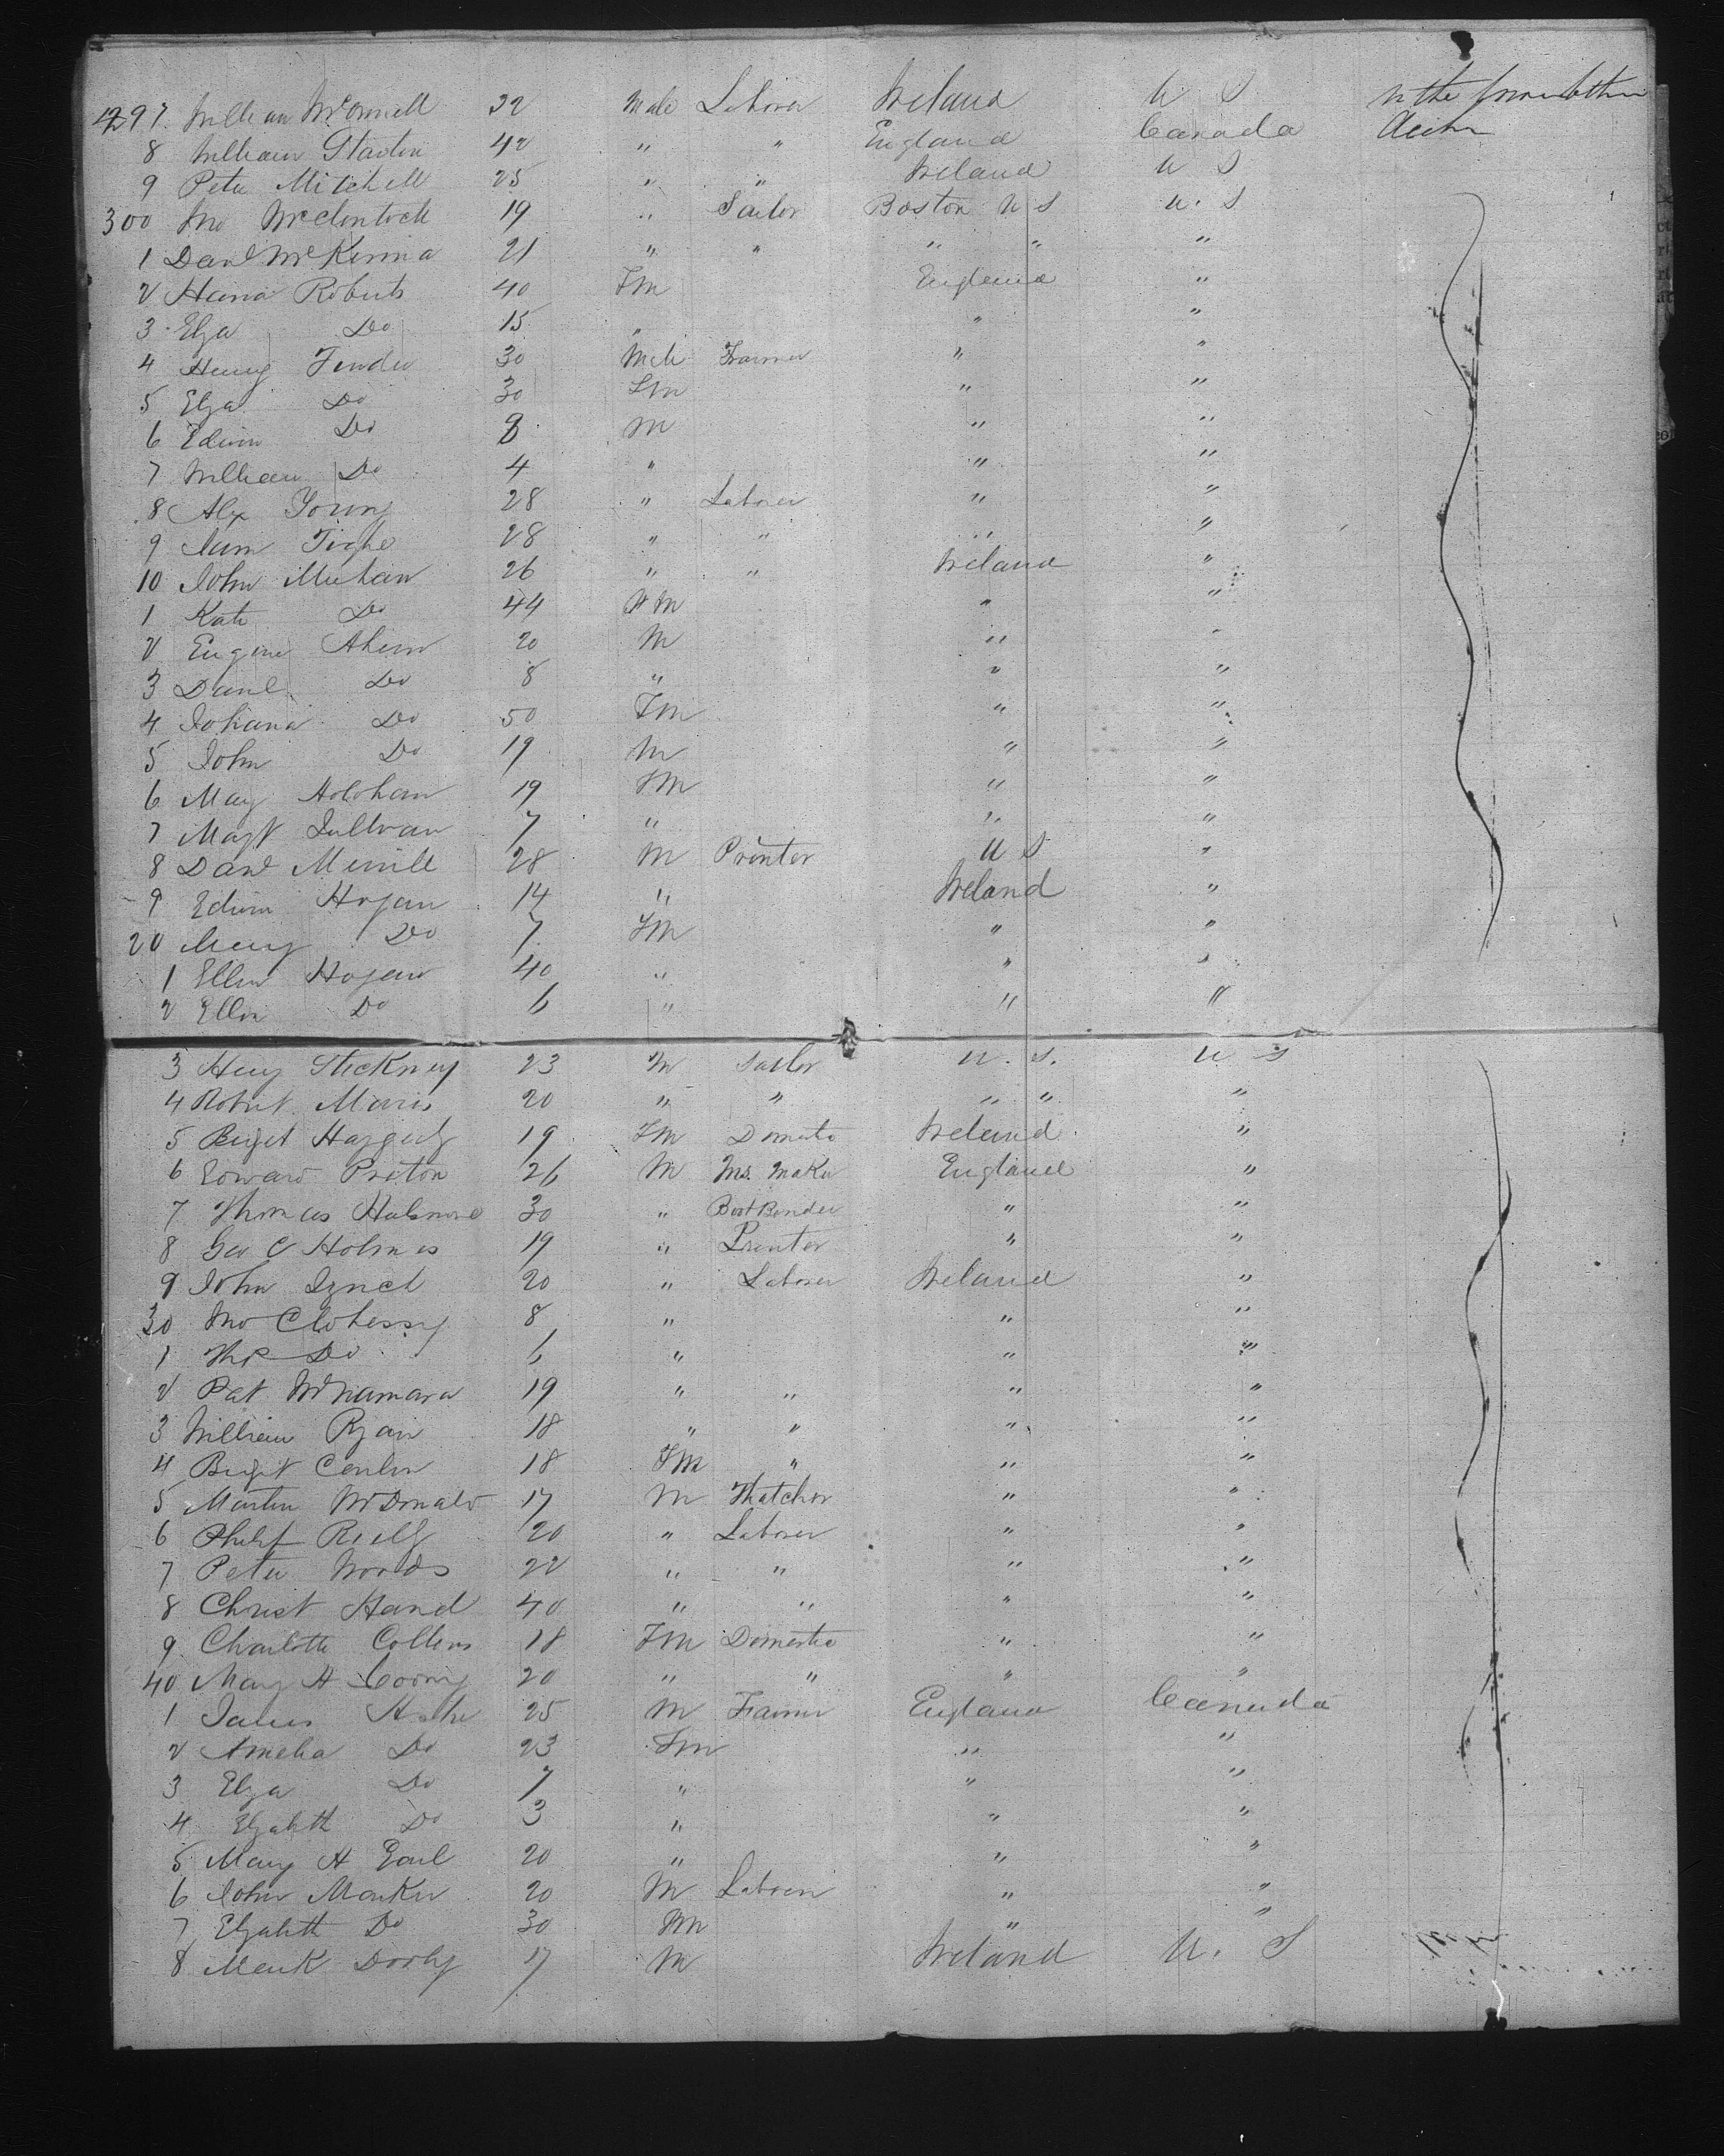 297 William McConnell 32 Male Laborer Ireland U S
8 William Staoton 42 " " England Canada
9 Peter Mitchell 25 " " Ireland U S
300 Jno McClintock 19 " Sailor Boston U S U. S
1 Danl McKinna 21 " " " " "
2 Hana Roberts 40 Fm England "
3 Elza Do 15 " " "
4 Henry Fender 30 Male Farmer " "
5 Elza Do 30 Fm " "
6 Edwin Do 8 M " "
7 William Do 4 " " "
8 Alex Young 28 " Laborer " "
9 Tighe 28 " " " "
10 John Meehan 26 " " Ireland "
1 Kate Do 44 Fm " "
2 Eugene Ahern 20 M " "
3 Danl Do 8 " " "
4 Johana Do 50 Fm " "
5 John Do 19 M " "
6 May Holohan 19 Fm " "
7 Magt Sullivan 7 " " "
8 Danl Merrill 28 M Printer U S "
9 Edwin Hogan 14 " Ireland "
20 Mary Do 7 Fm " "
1 Ellen Hogan 40 " " "
2 Ellen Do 6 " " "
3 Heny Stickney 23 M Sailor U. S. U S
4 Robert Maris 20 " " " " "
5 Briget Haggerty 19 Fm Domestc Ireland "
6 Edward Preton 26 M Maker England "
7 Thomas 30 " " "
8 Geo C Holmes 19 " Printer " "
9 John Lynch 20 " Laborer Ireland "
30 Jno Clohessy 8 " " "
1 Ths Do 6 " " "
2 Pat McNamara 19 " " " "
3 William Ryan 18 " " " "
4 Brigt Conlon 18 Fm " " "
5 Martin McDonald 17 M Thatcher " "
6 Philip Reilly 20 " Laborer " "
7 Peter Woods 22 " " " "
8 Christ Hand 40 " " " "
9 Charlotte Collins 18 Fm Domestic " "
40 Mary A 20 " " " "
1 James Ashe 25 M Farmer England Canada
2 Amelia Do 23 Fm " "
3 Elza Do 7 " " "
4 Elzabeth Do 3 " " "
5 Mary A Earl 20 " " "
6 John Marker 20 M Laborer " "
7 Elzabeth Do 30 Fm " "
8 Mark Dorby 17 M Ireland U. S